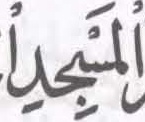 الْمَسْجِدِ ا